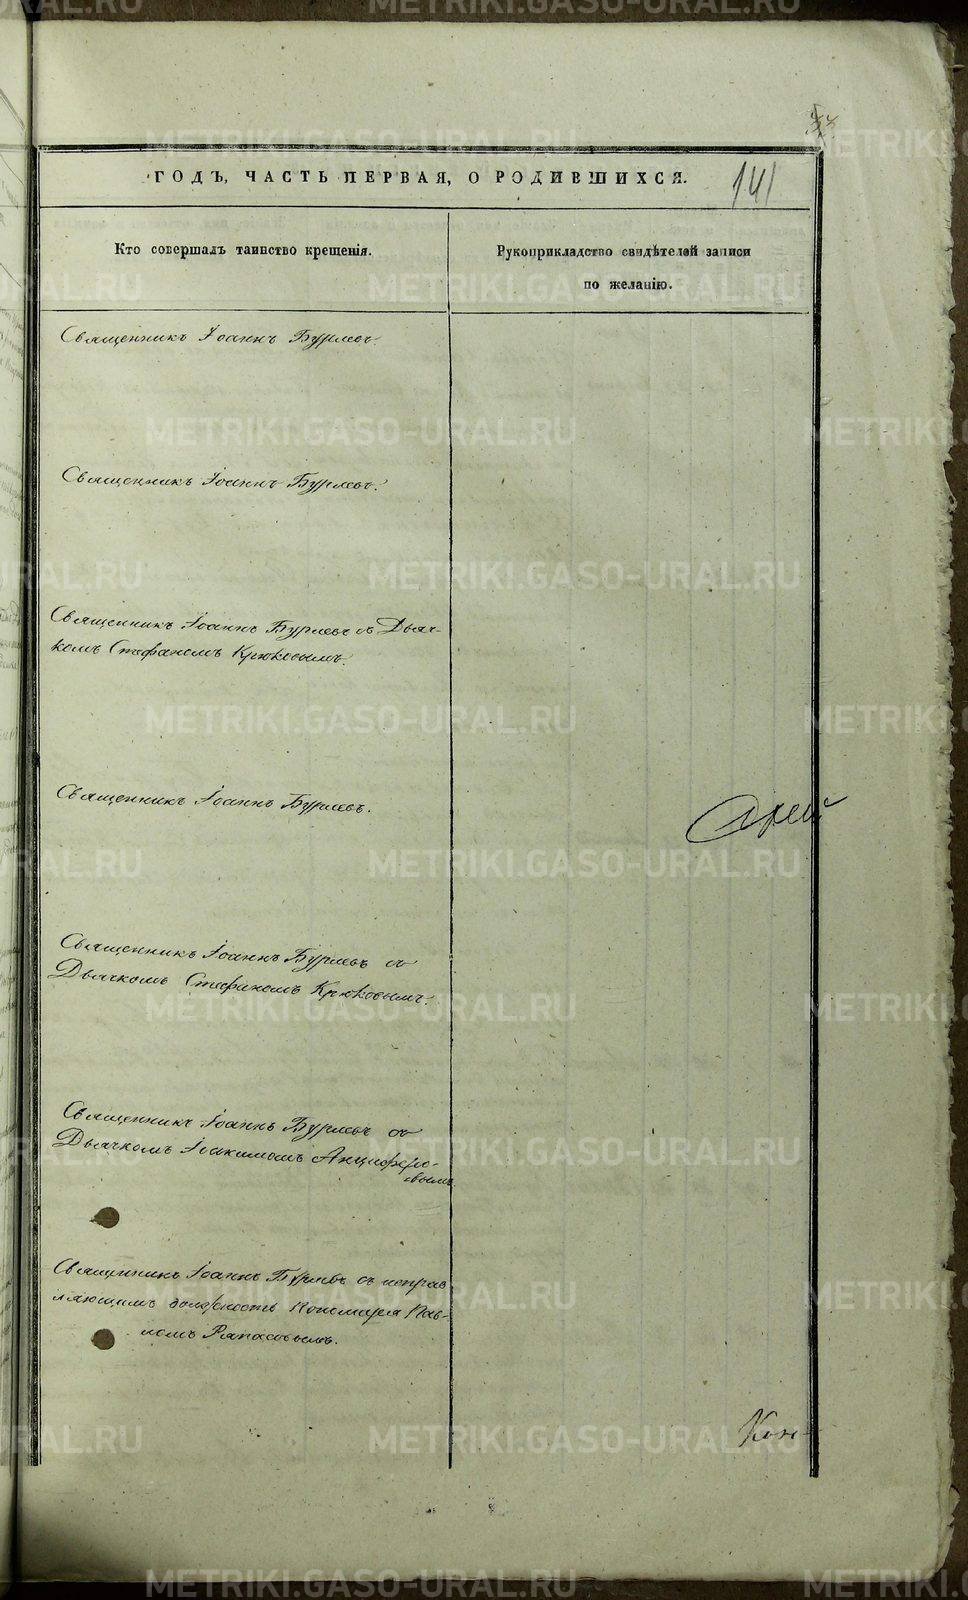 METRIKI.GASO-URAL.RU
141
ГОДЪ, ЧАСТЬ ПЕРВАЯ, О РОДИВШИХСЯ.
Кто совершалъ таинство крещенія.
Рукоприкладство свидѣтелей записи
по желанію.
Священникъ Іоаннъ Бурлевъ
Священникъ Іоаннъ Бурлевъ.
Священникъ Іоаннъ Бурлевъ съ Дьяч-
комъ Стефаномъ Крюковымъ.
Священникъ Іоаннъ Бурлевъ.
Священникъ Іоаннъ Бурлевъ съ
Дьячкомъ Стефаномъ Крюковымъ.
Священникъ Іоаннъ Бурлевъ съ
Дьячкомъ Іоакимомъ Анциферо-
вымъ
Священникъ Іоаннъ Бурлевъ съ исправ
ляющимъ должность Пономаря Пав-
ломъ